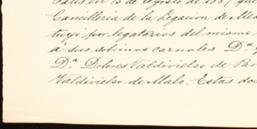 Paris en 15 de Agosto de 1887, que
Cancilleria de la Legacion de Me
tuyó por legatarios del mismo
á sus sobrinas carnales Dª
Dª Dolores Valdivielso de
Valdivielso de Malo. Estas dos